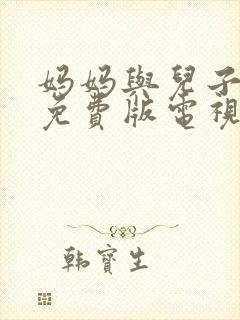 妈妈與兒子
免費版電視
韩寶生